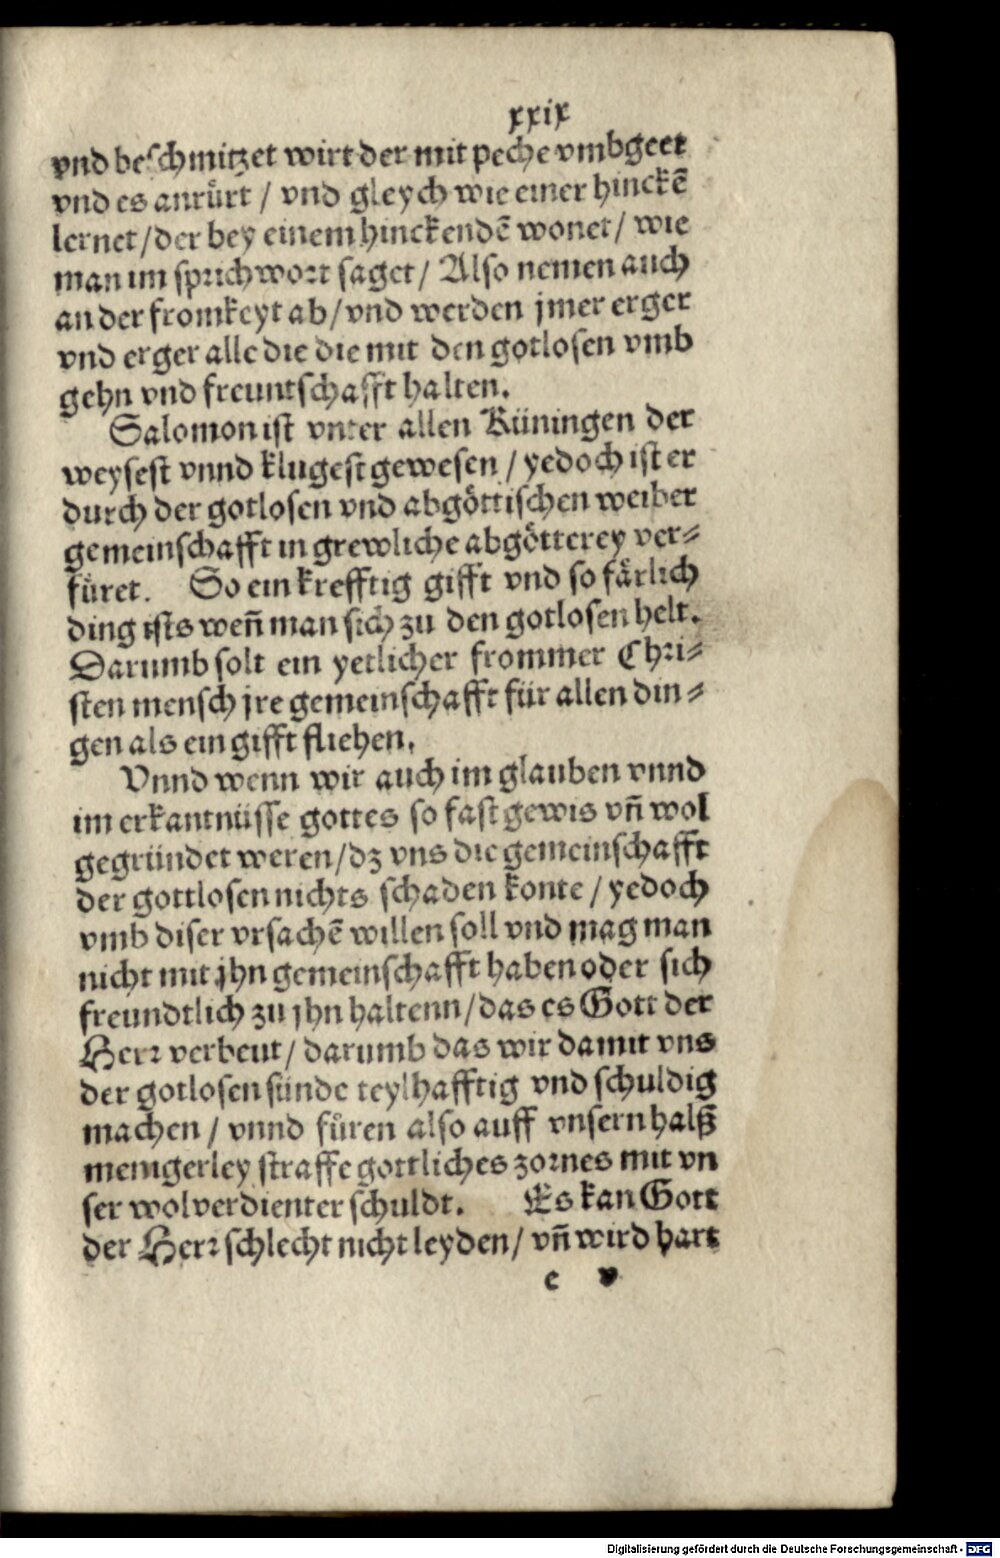 xxix
vnd beschmitzet wirt der mit peche vmbgeet
vnd es anrürt / vnd gleych wie einer hinckē
lernet / der bey einem hinckendē wonet / wie
man im sprichwort saget / Also nemen auch
an der fromkeyt ab / vnd werden jmer erger
vnd erger alle die die mit den gotlosen vmb
gehn vnd freuntschafft halten.
Salomon ist vnter allen Küningen der
weysest vnnd klugest gewesen / yedoch ist er
durch der gotlosen vnd abgöttischen weiber
gemeinschafft in grewliche abgötterey ver⸗
füret. So ein krefftig gifft vnd so färlich
ding ists weñ man sich zu den gotlosen helt.
Darumb solt ein yetlicher frommer Chri⸗
sten mensch jre gemeinschafft für allen din⸗
gen als ein gifft fliehen.
Vnnd wenn wir auch im glauben vnnd
im erkantnüsse gottes so fast gewis vñ wol
gegründet weren / dz vns die gemeinschafft
der gottlosen nichts schaden konte / yedoch
vmb diser vrsachē willen soll vnd mag man
nicht mit jhn gemeinschafft haben oder sich
freundtlich zu jhn haltenn / das es Gott der
Herr verbeut / darumb das wir damit vns
der gotlosen sünde teylhafftig vnd schuldig
machen / vnnd füren also auff vnsern halß
menigerley straffe gottliches zornes mit vn
ser wolverdienter schuldt. Es kan Gott
der Herr schlecht nicht leyden / vñ wird hart
c v
Digitalisierung gefördert durch die Deutsche Forschungsgemeinschaft - DFG